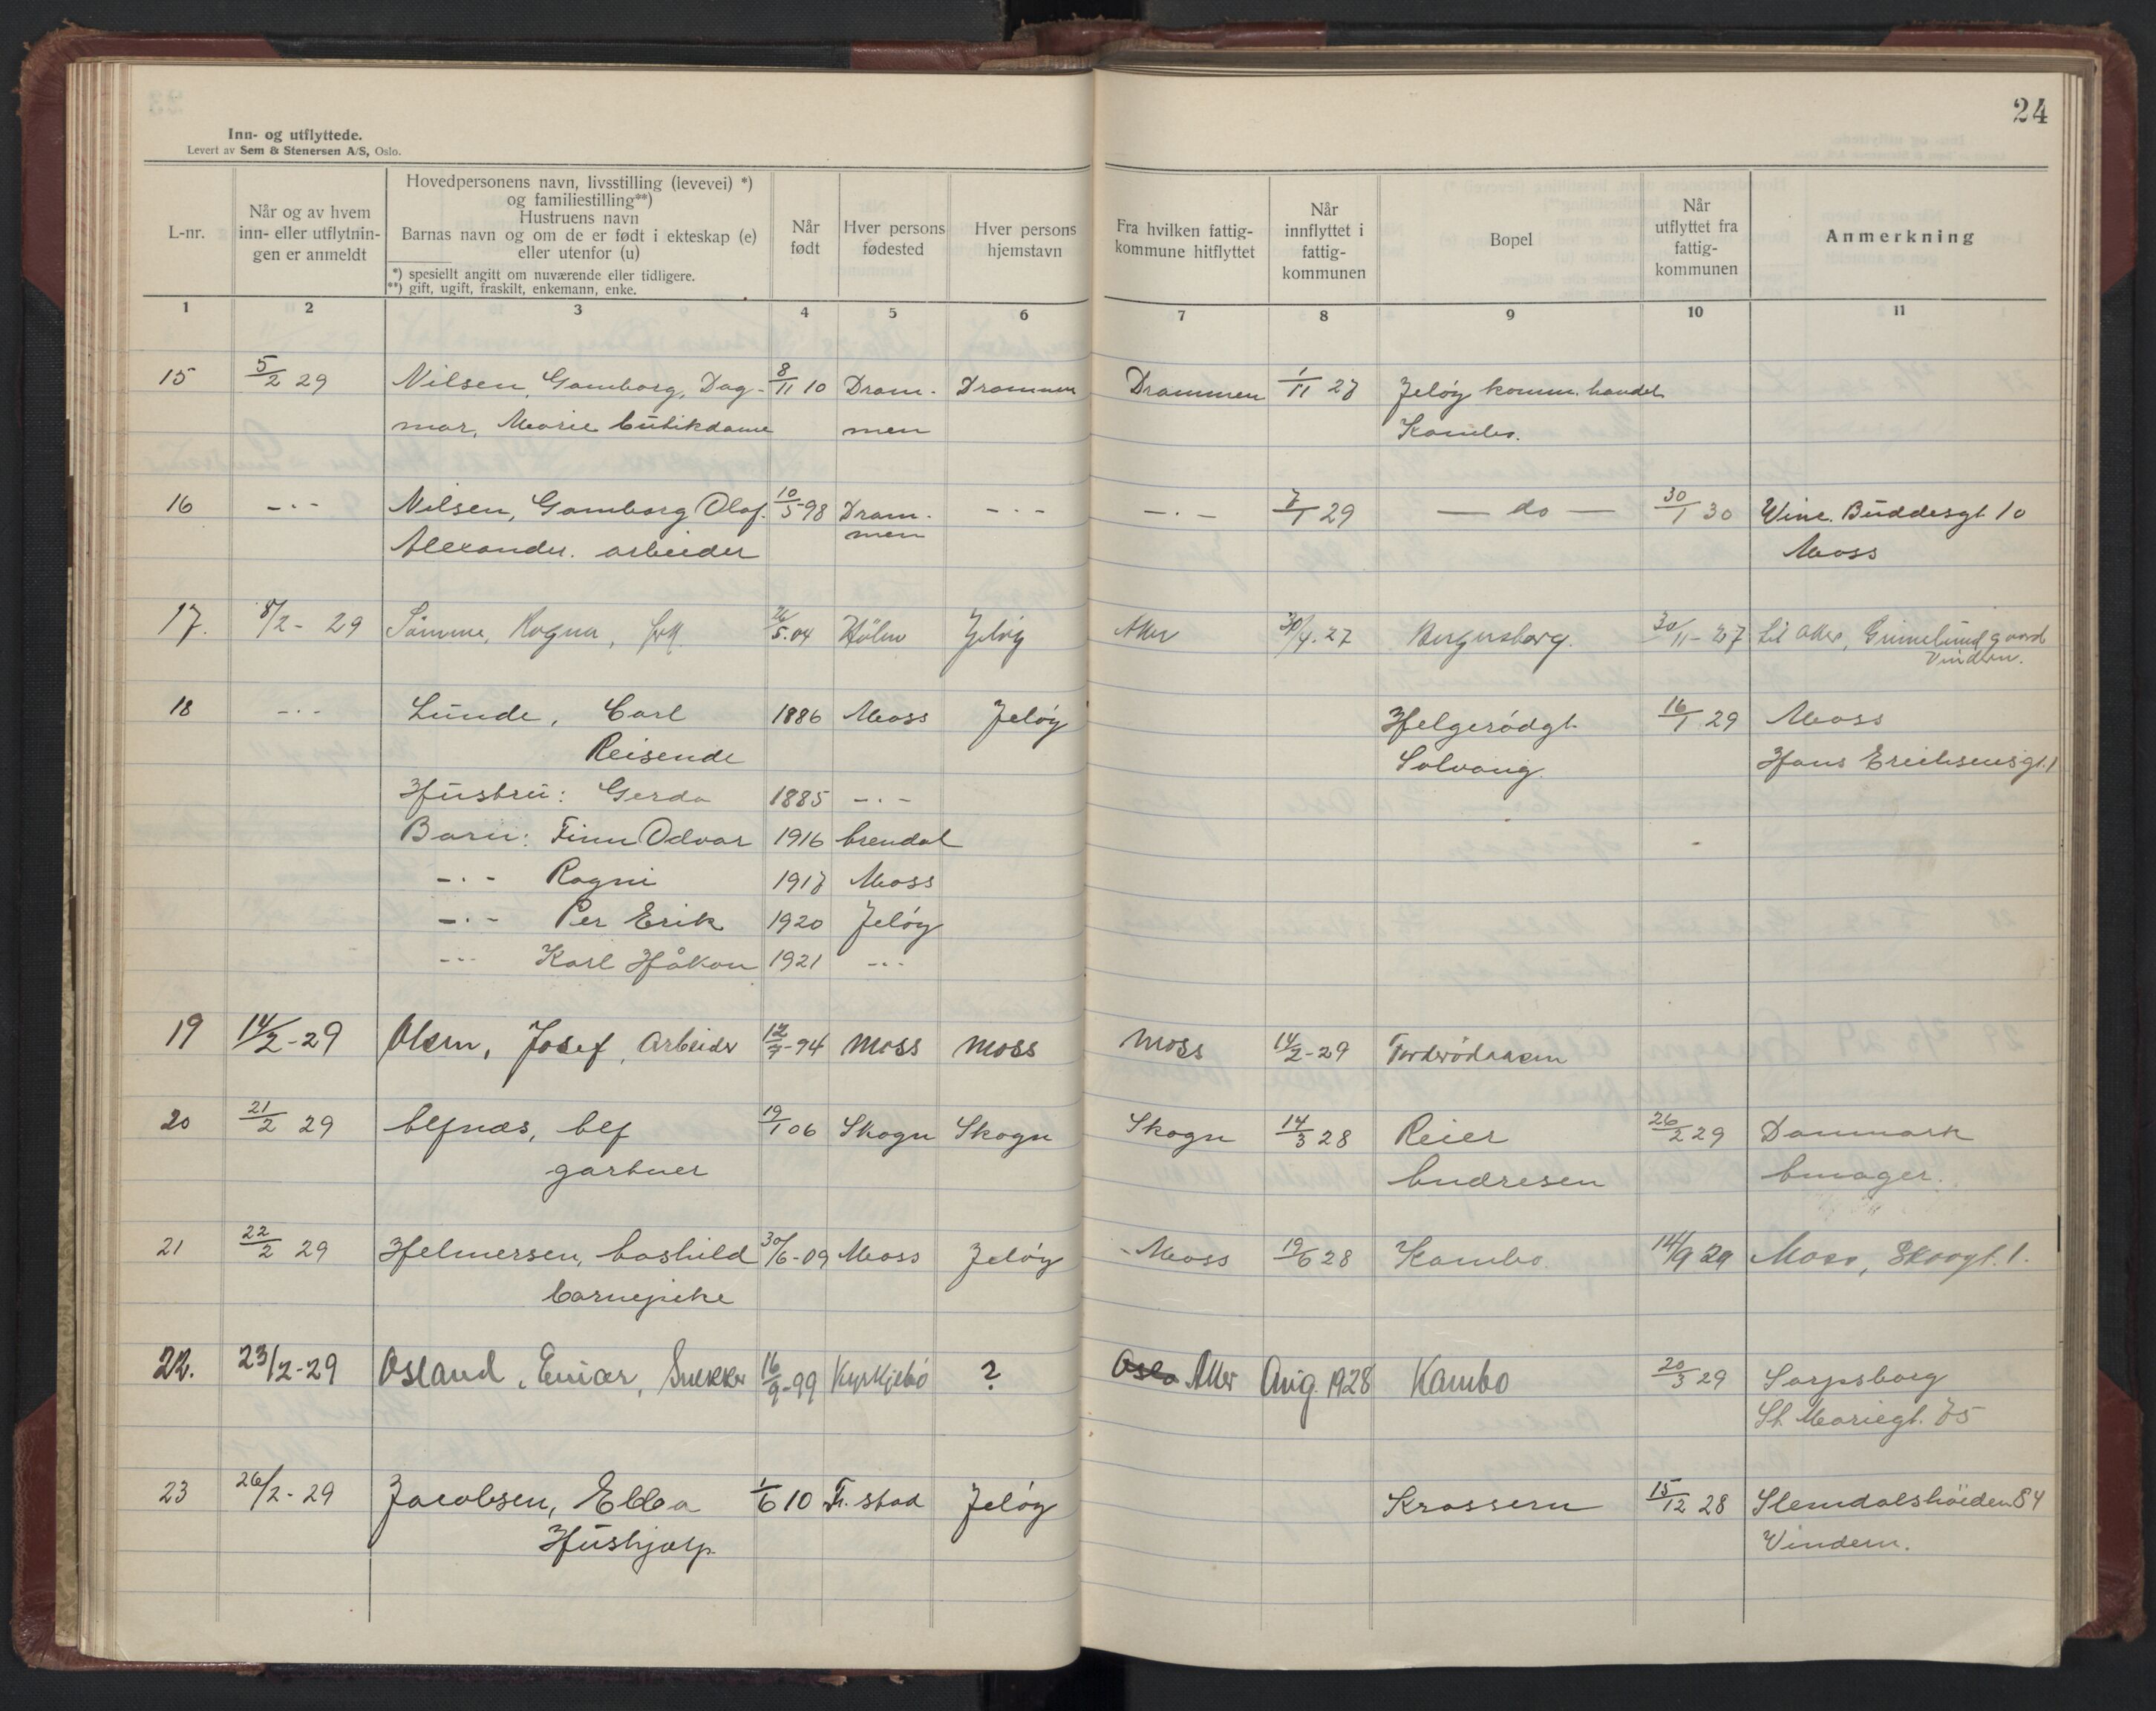 24
Inn- og utflyttede.
Levert av Sem & Stenersen A/S, Oslo.
L-nr.
Når og av hvem
inn- eller utflytnin-
gen er anmeldt
Hovedpersonens navn, livsstilling (levevei) *)
og familiestilling**)
Hustruens navn
Barnas navn og om de er født i ekteskap (e)
eller utenfor (u)
*) spesiellt angitt om nuværende eller tidligere.
**) gift, ugift, fraskilt, enkemann, enke.
Når
født
Hver persons
fødested
Hver persons
hjemstavn
Fra hvilken fattig-
kommune hitflyttet
Når
innflyttet i
fattig-
kommunen
Bopel
Når
utflyttet fra
fattig-
kommunen
Anmerkning
1 2 3 4 5 6 7 8 9 10 11
15 5/2 29 Nilsen, Gamborg, Dag- 8/11 10 Dram- Drammen Drammen 1/11 27 Jeløy komm. handel
mar, Marie butikdame men Kambo.
16 -·- Nilsen, Gamborg Olaf 10/5 98 Dram- -·- -·- 7/1 29 — do — 30/1 30 Winc. Buddesgt 10
Alexander. arbeider men Moss
17. 8/2- 29 Sømme, Ragna, frk. 26/5.04 Hölen Jeløy Aker 30/4.27 Bergersborg. 30/11-27 til Aker, Grimelund gaard
Vindern.
18 -·- Lunde, Carl 1886 Moss Jeløy Helgerødgt. 16/1 29 Moss
Reisende Solvang. Hans Erichsensgt. 1
Hustru: Gerda 1885 -·-
Barn: Finn Odvar 1916 Arendal
-·- Ragni 1917 Moss
-·- Per Erik 1920 Jeløy
-·- Karl Håkon 1921 -·-
19 14/2-29 Olsen, Josef, Arbeider 12/7-94 Moss Moss Moss 14/2-29 Torderødaasen
20 21/2 29 Alfnæs, Alf 19/1 06 Skogn Skogn Skogn 14/3 28 Reier 26/2 29 Danmark
gartner Andresen Amager.
21 22/2 29 Helmersen, Aashild 30/6-09 Moss Jeløy Moss 19/6 28 Kambo. 14/9 29 Moss, Skoggt. 1.
barnepike
22. 23/2-29 Osland, Einar, Snekker 16/9-99 Kyrkjebø ? Oslo Aker Aug. 1928 Kambo 20/3 29 Sarpsborg
St. Mariegt. 75
23 26/2-29 Jacobsen, Ebba 1/6 10 Fr.stad Jeløy Krossern 15/12 28 Slemdalshöiden 84
Hushjælp Vindern.